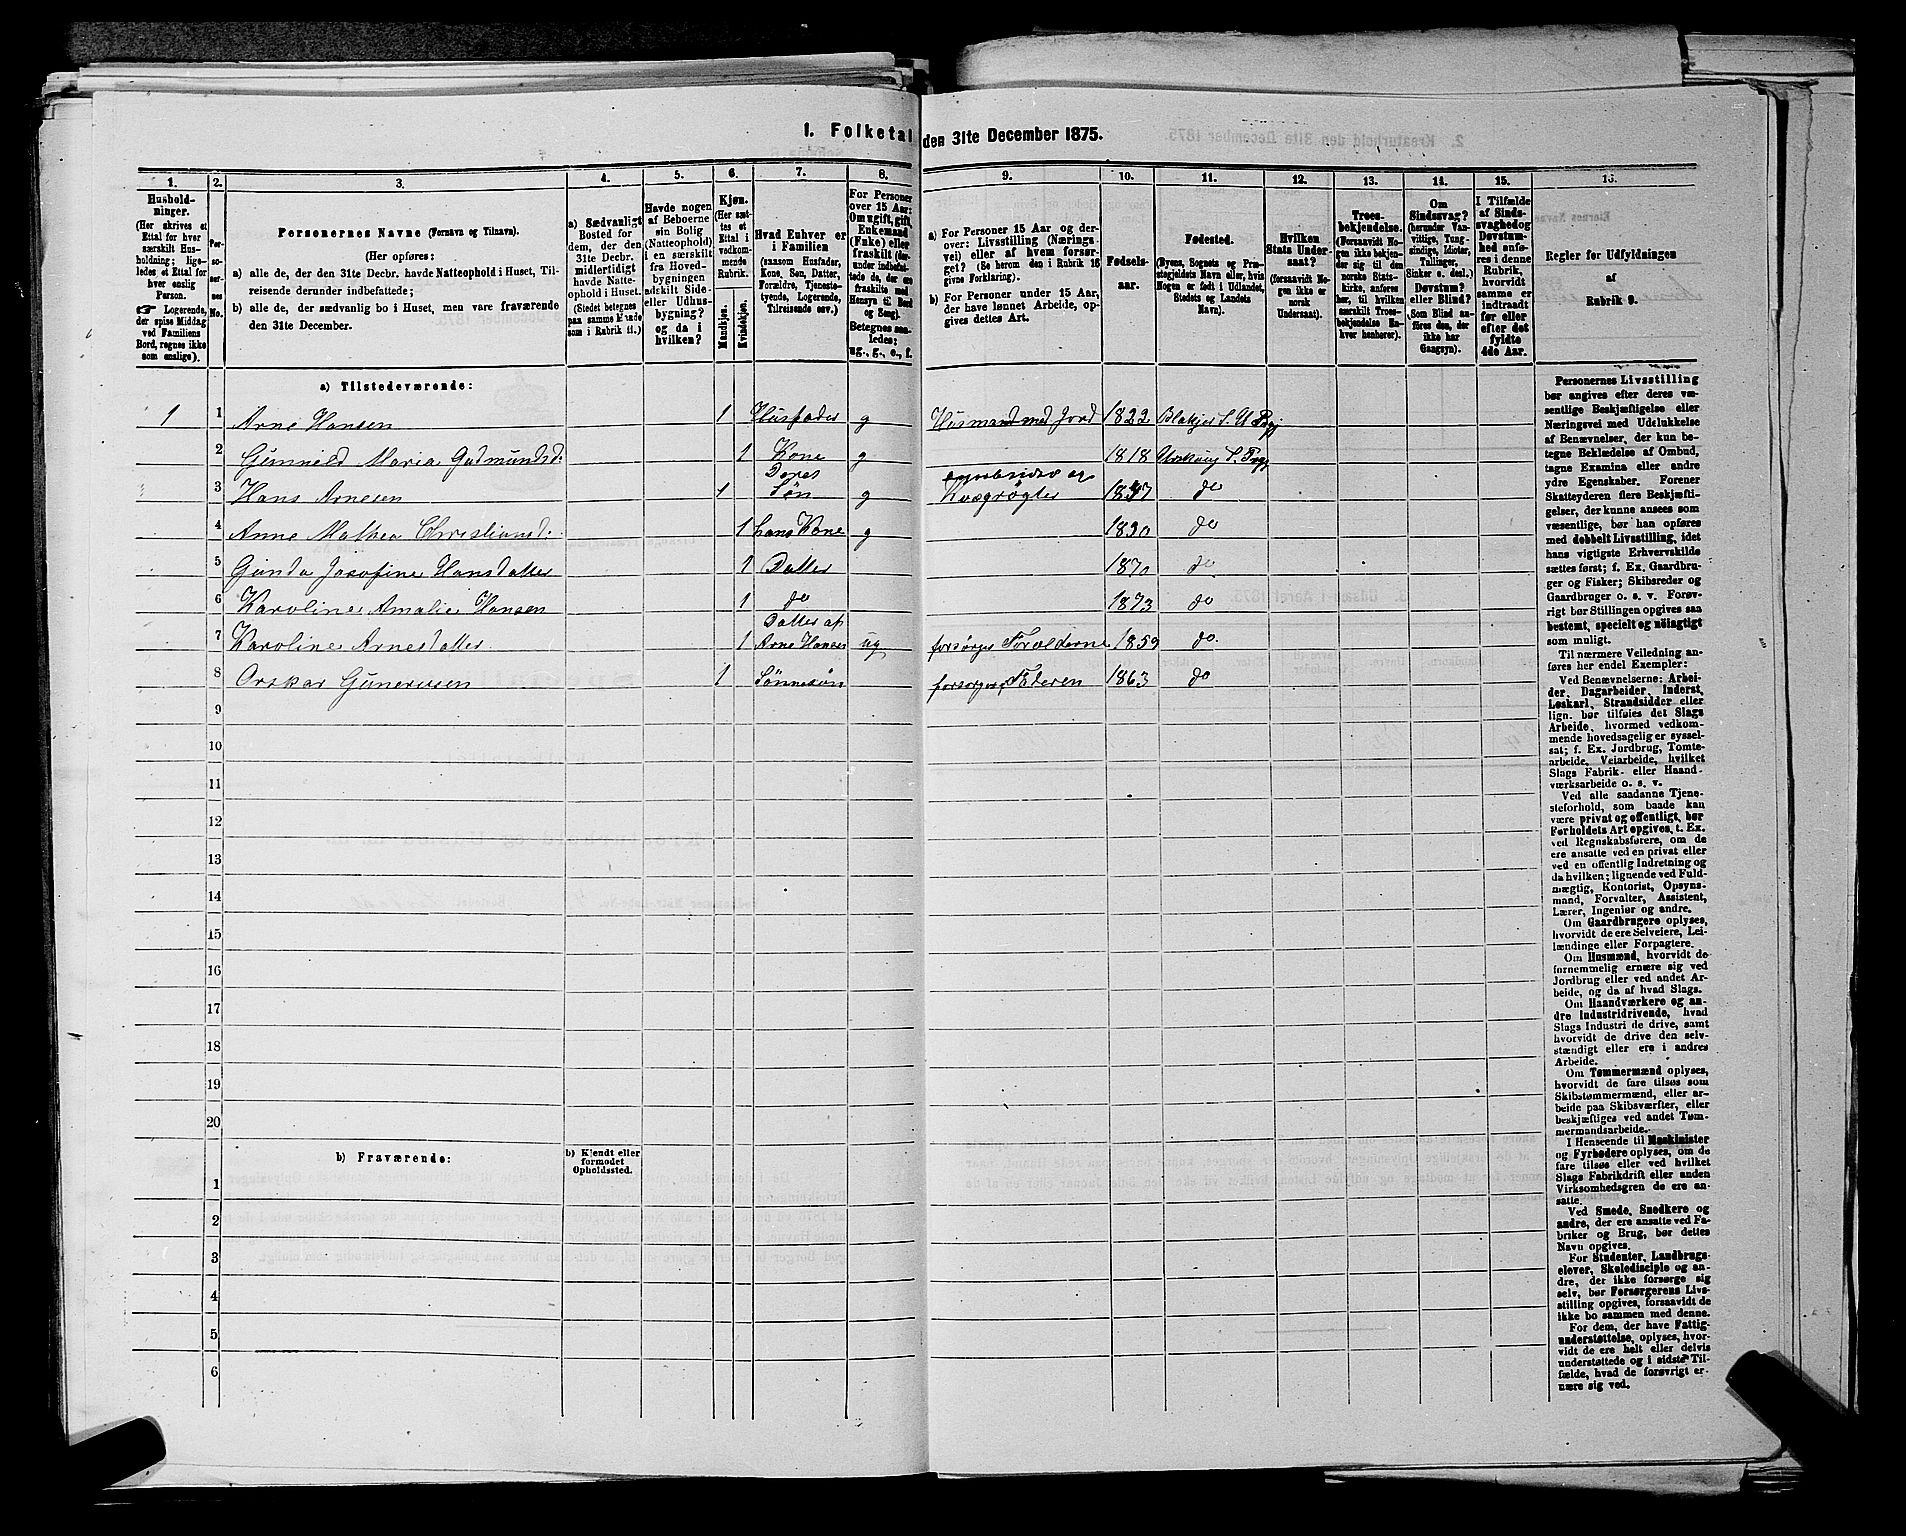 1. Folketal den 31te December 1875.
1. 2. 3. 4. 5. 6. 7. 8. 9. 10. 11. 12. 13. 14. 15. 16.
Hushold-
ninger.
(Her skrives et
Ettal for hver
særskilt Hus-
holdning; lige-
ledes et Ettal for
hver enslig
Person.
Logerende,
der spise Middag
ved Familiens
Bord, regnes ikke
som enslige).
Per-
so-
ner-
nes
No.
Personernes Navne (Fornavn og Tilnavn).
(Her opføres:
a) alle de, der den 31te Decbr. havde Natteophold i Huset, Til-
reisende derunder indbefattede;
b) alle de, der sædvanlig bo i Huset, men vare fraværende
den 31te December.
a) Sædvanligt
Bosted for
dem, der den
31te Decbr.
midlertidigt
havde Natte-
ophold i Huset.
(Stedet betegnes
paa samme Maade
som i Rubrik 11.)
Havde nogen
af Beboerne
sin Bolig
(Natteophold)
i en særskilt
fra Hoved-
bygningen
adskilt Side-
eller Udhus-
bygning?
og da i
hvilken?
Kjøn.
(Her sæt-
tes et
Ettal i
vedkom-
mende
Rubrik.
Mandkjøn.
Kvindekjøn.
Hvad Enhver er
i Familien
(saasom Husfader,
Kone, Søn, Datter,
Forældre, Tjeneste-
tyende, Logerende,
Tilreisende osv.)
For Personer
over 15 Aar:
Om ugift, gift,
Enkemand
(Enke) eller
fraskilt (der-
under indbefat-
tede de, der ere
fraskilte med
Hensyn til Bord
og Seng).
Betegnes saa-
ledes:
ug., g., e., f.
a) For Personer 15 Aar og der-
over: Livsstilling (Nærings-
vei) eller af hvem forsør-
get? (Se herom den i Rubrik 16
givne Forklaring).
b) For Personer under 15 Aar,
der have lønnet Arbeide, op-
gives dettes Art.
Fødsels-
aar.
Fødested.
(Byens, Sognets og Præ-
stegjeldets Navn eller, hvis
Nogen er født i Udlandet,
Stedets og Landets
Navn).
Hvilken
Stats Under-
saat?
(forsaavidt No-
gen ikke er
norsk
Undersaat).
Troes-
bekjendelse.
(Forsaavidt No-
gen ikke bekjen-
der sig til den
norske Stats-
kirke, anføres
her, til hvilken
særskilt Troes-
bekjendelse En-
hver henhører).
Om
Sindssvag?
(herunder Van-
vittige, Tung-
sindige, Idioter,
Tullinger,
Sinker o. desl.)
Døvstum?
eller Blind?
(Som Blind an-
føres den, der
ikke har
Gangsyn).
I Tilfælde
af Sinds-
svaghed og
Døvstum-
hed anfø-
res i denne
Rubrik,
hvorvidt
samme er
indtraadt
før eller
efter det
fyldte
4de Aar.
Regler for Udfyldningen
af
Rubrik 9.
a) Tilstedeværende:
1 1 Arne Hansen 1 Husfader g Husmand med Jord 1822
2 Gunnild Maria Gudmundsd: 1 Kone g 1818
3 Hans Arnesen 1 Deres Søn g og 1837 do
4 Anne Mathea Christiansd: 1 hans Kone g 1830 do
5 Gunda Josefine Hansdatter 1 Datter 1870 do
6 Karoline Amalie Hansen 1 do 1873 do
7 Karoline Arnesdatter 1 Datter af Arne Hansen ug forsørges Forelderne 1859 do.
8 Oskar Gunerusen 1 Sønnesøn forsørges Faderen 1863 do
9
10
11
12
13
14
15
16
17
18
19
20
b) Fraværende:
b) Kjendt eller
formodet
Opholdssted.
1
2
3
4
5
6
Personernes Livsstilling
bør angives efter deres væ-
sentlige Beskjæftigelse eller
Næringsvei med Udelukkelse
af Benævnelser, der kun be-
tegne Beklædelse af Ombud,
tagne Examina eller andre
ydre Egenskaber. Forener
Skatteyderen flere Beskjæfti-
gelser, der kunne ansees som
væsentlige, bør han opføres
med dobbelt Livsstilling, idet
hans vigtigste Erhvervskilde
sættes først; f. Ex. Gaardbru-
ger og Fisker; Skibsreder og
Gaardbruger o. s. v. Forøv-
rigt bør Stillingen opgives saa
bestemt, specielt og nøiagtigt
som muligt.
Til nærmere Veiledning an-
føres her endel Exempler:
Ved Benævnelserne: Arbei-
der, Dagarbeider, Inderst,
Løskarl, Strandsidder eller
lign. bør tilføies det Slags
Arbeide, hvormed vedkom-
mende hovedsagelig er syssel-
sat; f. Ex. Jordbrug, Tomte-
arbeide, Veiarbeide, hvilket
Slags Fabrik- eller Haand-
værksarbeide o. s. v.
Ved alle saadanne Tjene-
steforhold, som baade kan
være privat og offentligt, bør
Forholdets Art opgives, t. Ex.
ved Regnskabsførere, om de
ere ansatte ved en privat eller
ved en offentlig Indretning og
da hvilken; lignende ved Fuld-
mægtig, Kontorist, Opsyns-
mand, Forvalter, Assistent,
Lærer, Ingeniør og andre.
Om Gaardbrugere oplyses,
hvorvidt de ere Selveiere, Lei-
lændinge eller Forpagtere.
Om Husmænd, hvorvidt de
fornemmelig ernære sig ved
Jordbrug eller ved andet Ar-
beide, og da af hvad Slags.
Om Haandværkere og an-
dre Industridrivende, hvad
Slags Industri de drive, samt
hvorvidt de drive den selv-
stændigt eller ere i andres
Arbeide.
Om Tømmermænd oplyses,
hvorvidt de fare tilsøs som
Skibstømmermænd, eller ar-
beide paa Skibsværfter, eller
beskjæftiges ved andet Tøm-
mermandsarbeide.
I Henseende til Maskinister
og Fyrbødere oplyses, om de
fare tilsøs eller ved hvilket
Slags Fabrikdrift eller anden
Virksomhedsgren de ere an-
satte.
Ved Smede, Snedkere og
andre, der ere ansatte ved Fa-
briker og Brug, bør dettes
Navn opgives.
For Studenter, Landbrugs-
elever, Skoledisciple og an-
dre, der ikke forsørge sig
selv, bør Forsørgerens Livs-
stilling opgives, forsaavidt de
ikke bo sammen med denne.
For dem, der have Fattig-
understøttelse, oplyses, hvor-
vidt de ere helt eller delvis
understøttede og i sidste Til-
fælde, hvad de forøvrigt er-
nære sig ved.